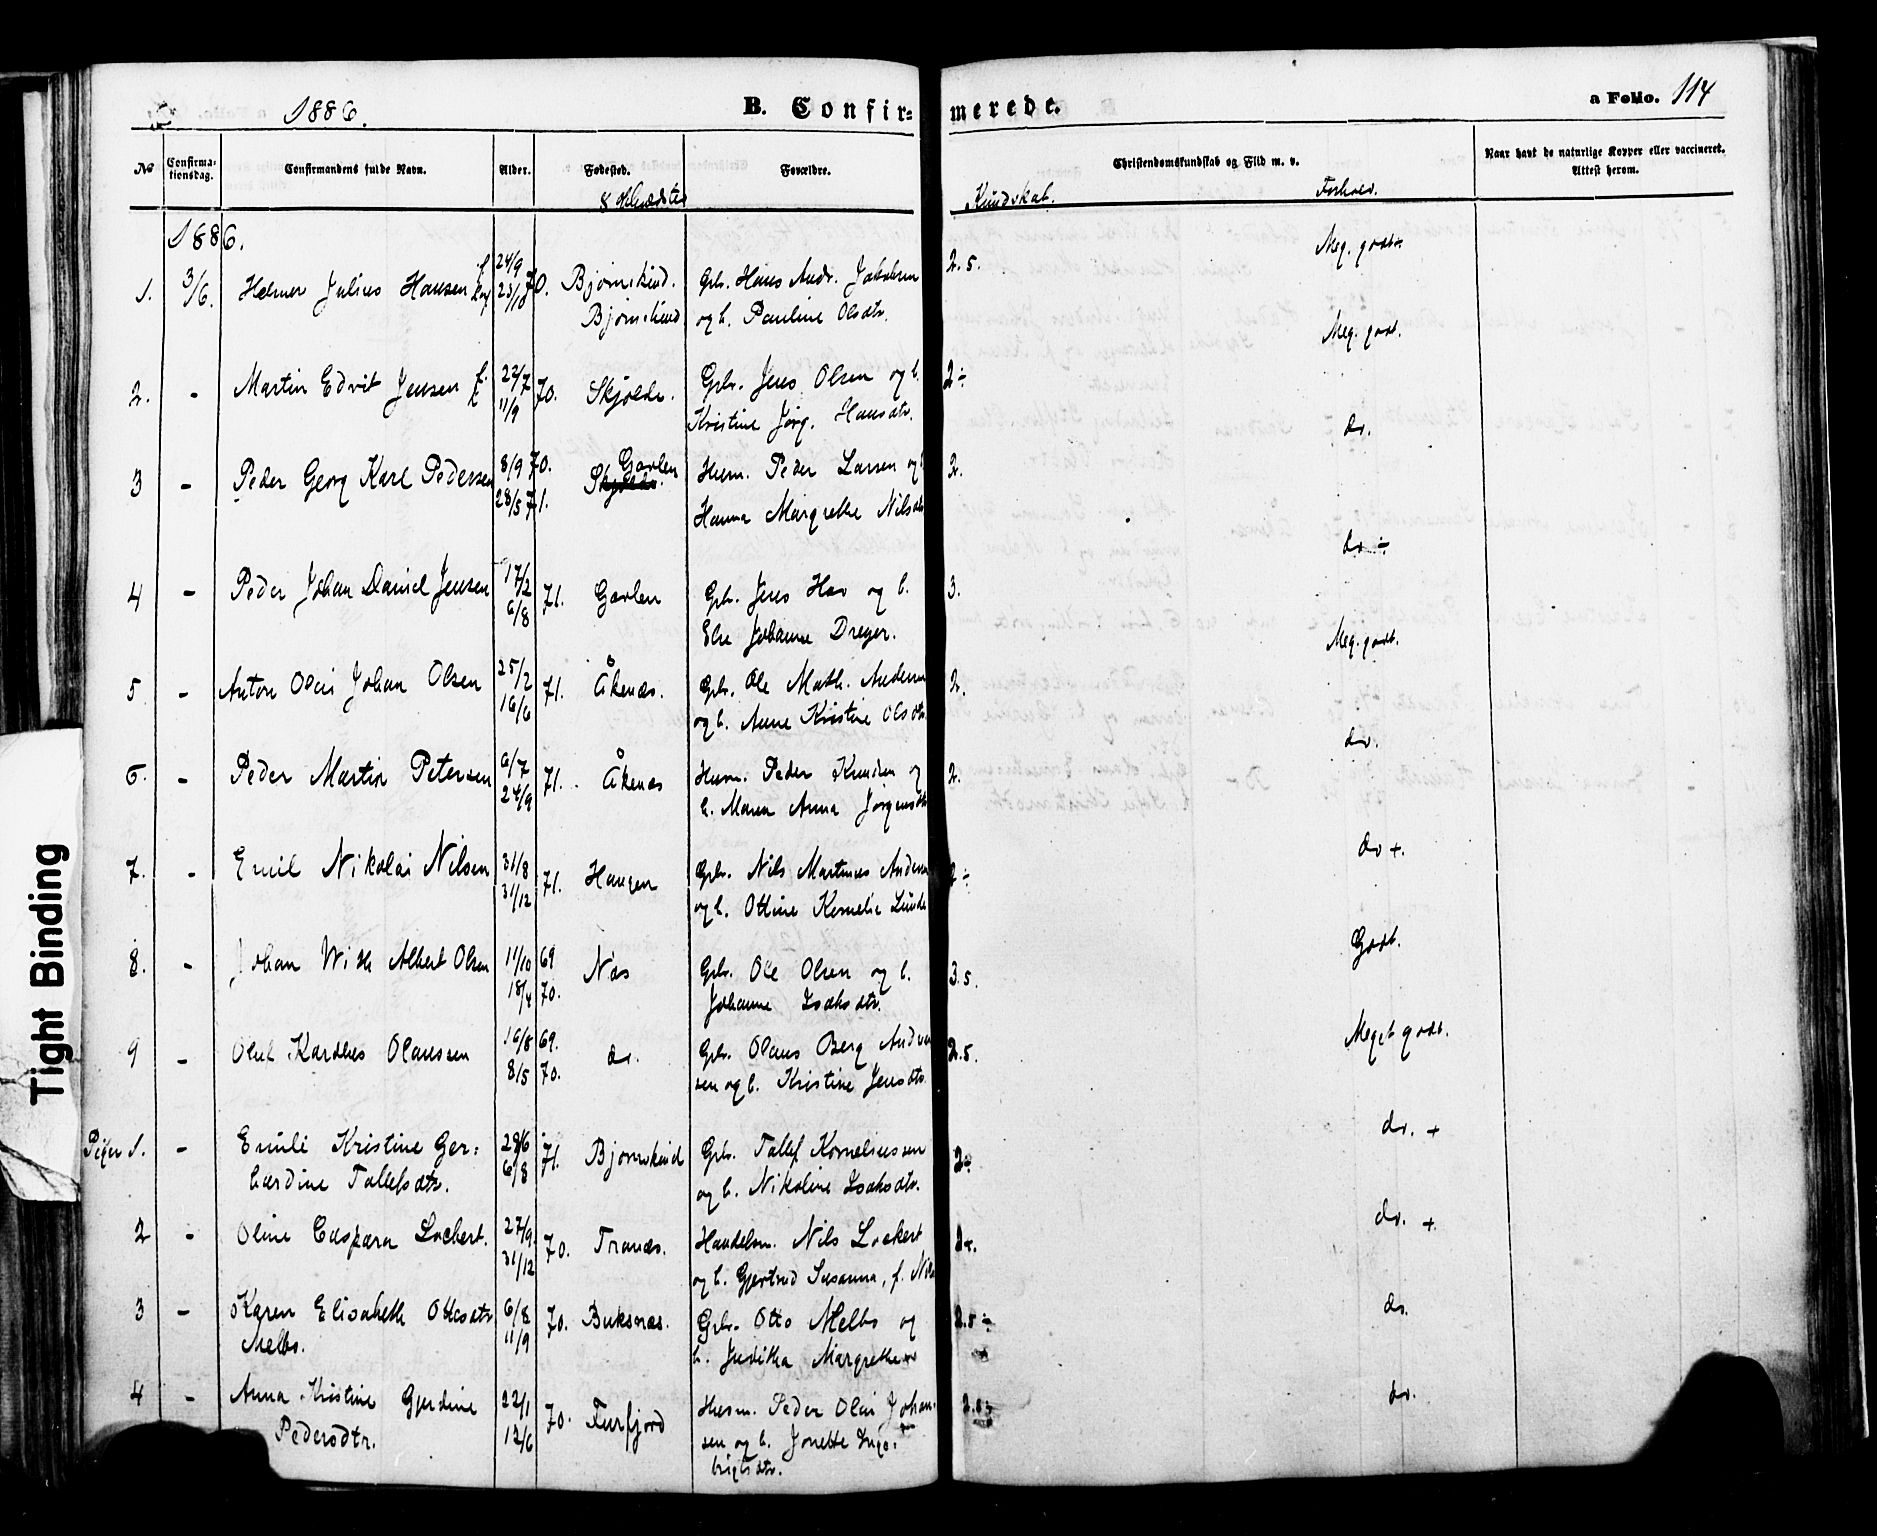 1886.
B. Confir-
merede.
a Folio. 114
No
Confirma-
tionsdag.
Confirmandens fulde Navn.
Alder.
Fødested.
Forældre.
Christendomskundskab og Flid m. v.
Naar havt de naturlige Kopper eller vaccineret.
Attest herom.
Kundskab.
Forhold.
1886.
1. 3/6. Helmer Julius Hansen f. 24/9 70. Bjørnskind. Gbr. Hans Andr. Jakobsen 2.5. Meg. godt
23/10 Bjørnskind og h. Pauline Olsdtr.
2. - Martin Edvit Jensen f. 22/7 70. Skjolde. Gbr. Jens Olsen og h. 2÷ Meg. godt.
11/9 Kristine Jørg. Hansdtr.
3 - Peder Georg Karl Pedersen 8/9 70. Gavlen Husm. Peder Larsen og h 2. do.
28/5 71. Skjolde. Hanna Margrethe Nilsdtr
4 - Peder Johan Daniel Jensen 17/2 71. Gavlen Gbr. Jens Hav og h. 3. do ÷
6/8 Else Johanne Dreyer.
5 - Anton Olai Johan Olsen 25/2 71. Åkenæs. Gbr. Ole Math. Andersen 2. Meg. godt.
16/6 og h. Anne Kristine Olsdtr.
6. - Peder Martin Petersen 6/7 71. Åkenæs Husm. Peder Knudsen og 2. do.
24/9 h. Maren Anna Jørgensdtr
7. - Emil Nikolai Nilsen 31/8 71. Haugen Gbr. Nils Martinus Andersen 2÷ do +.
31/12 og h. Ottine Kornelia Lunde
8. - Johan With Albert Olsen 11/10 69 Næs Gbr. Ole Olsen og h. 3.5. Godt.
18/4 70. Johanne Isaksdtr.
9 - Oluf Kardbes Olaussen 16/8 69. do. Gbr. Olaus Berg Ander 2.5. Meget godt.
8/5 70. sen og h. Kristine Jensdtr.
Piger 1. - Emili Kristine Ger= 29/6 71. Bjørnskind Gbr. Tollef Korneliussen 2÷ do. +
hardine Tollefsdtr. 6/8 og h. Nikoline Isaksdtr.
2 - Oline Caspara Lockert. 27/9 70. Tranæs. Handelsm. Nils Lockert 2+. do. +
31/12 og h. Gjertrud Susanna, f. Nils
3 - Karen Elisabeth Ottesdtr 6/8 70. Buksnæs. Gbr. Otto Melbo og 2.5÷ do.
Melbo. 11/9 h. Juditha Margrethe
4 - Anna Kristine Gjerdine 22/1 70. Furfjord Husm. Peder Olai Johan- 2.5÷ do.
Pedersdtr. 12/6 sen og h. Jonette Inge-
brigtsdtr.
Tight Binding